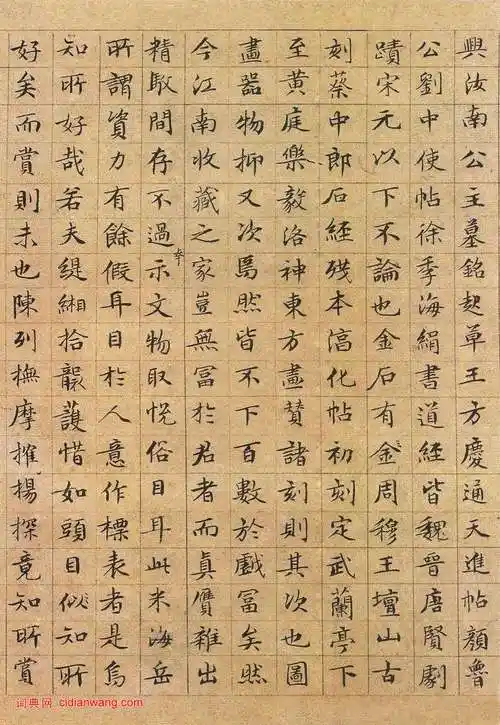 興汝南公主墓銘起草王方慶通天進帖顏魯
公劉中使帖徐季海絹書道經皆魏晉唐賢劇
蹟宋元以下不論也金石有金周穆王壇山古
刻蔡中郎石經殘本淳化帖初刻定武蘭亭下
至黃庭樂毅洛神東方畫贊諸刻則其次也圖
畫器物抑又次焉然皆不下百數於戲富矣然
今江南收藏之家豈無富於君者而眞贋雜出
精駁間存不過夸示文物取悅俗目耳此米海岳
所謂資力有餘假耳目於人意作標表者是烏
知所好哉若夫緹緗拾襲護惜如頭目似知所
好矣而賞則未也陳列撫摩搉揚探竟知所賞
词典网 cidianwang.com